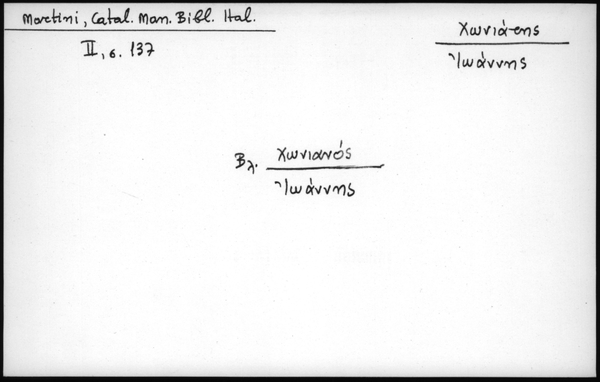 Martini, Catal. Man. Bibl. Ital.
II, σ. 137
Χωνιάτης
Ἰωάννης
Βλ. Χωνιανός
Ἰωάννης